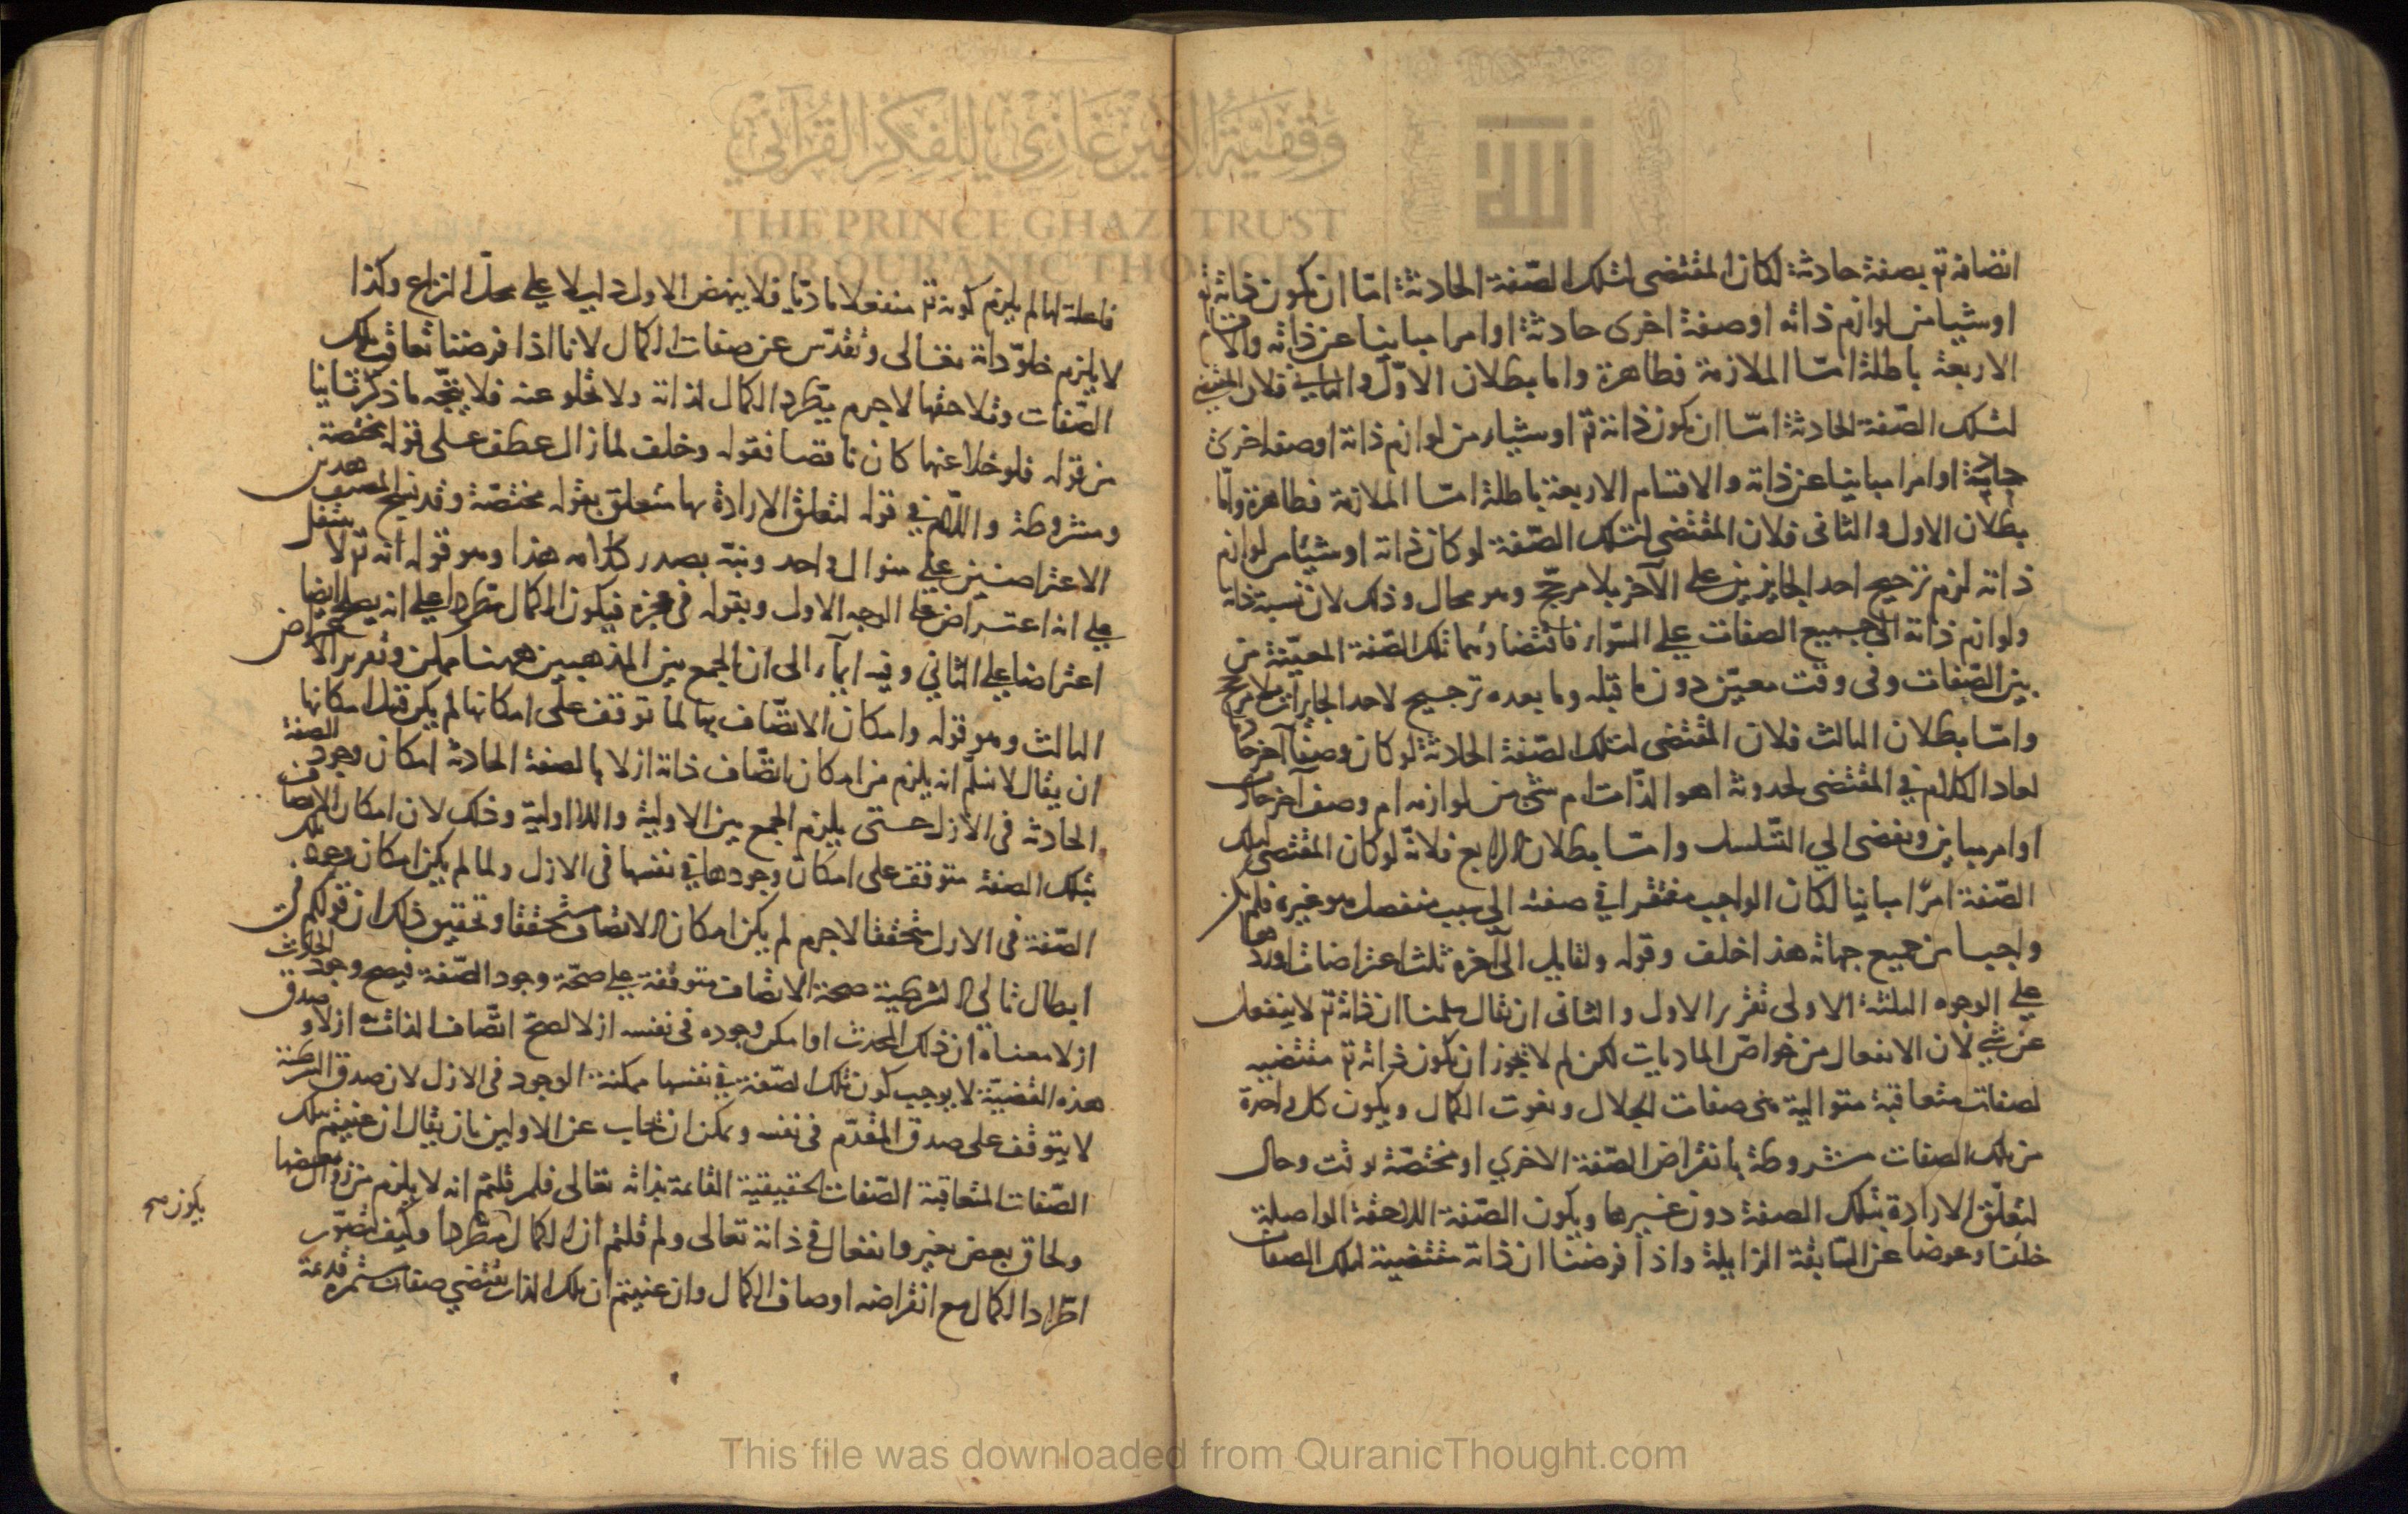 اتصافه تع بصفة حادثة لكان المقتضى لتلك الصّفة الحادثة امّا ان يكون ذاته تع
او شيأ من لوازم ذاته او صفة اخرى حادثة او امرا مباينا عن ذاته والاقسام
الاربعة باطلة امّا الملازمة فظاهرة واما بطلان الاوّل والثاني فلان المقتضى
لتلك الصّفة الحادثة امّا ان يكون ذاته تع او شيأ من لوازم ذاته او صفة اخرى
حادثة او امرا مباينا عن ذاته والاقسام الاربعة باطلة امّا الملازمة فظاهرة وامّا
بطلان الاول والثانى فلان المقتضى لتلك الصّفة لو كان ذاته او شيئا من لوازم
ذاته لزم ترجيح احد الجايزين على الآخر بلا مرجّح وهو محال وذلك لان نسبة ذاته
ولوازم ذاته الى جميع الصفات على السّواء فاقتضاؤهما تلك الصّفة المعيّنة من
بين الصّفات وفى وقت معيّن دون ما قبله وما بعده ترجيح لاحد الجايزين بلا مرجح
وامّا بطلان الثالث فلان المقتضى لتلك الصّفة الحادثة لو كان وصفا آخر حادثا
لعاد الكلام في المقتضى لحدوثه اهو الذّات ام شئ من لوازمه ام وصف آخر حادث
او امر مباين ويفضى الي التّسلسل وامّا بطلان الرابع فلانّه لو كان المقتضى لتلك
الصّفة امرّا مباينا لكان الواجب مفتقرا في صفته الى سبب منفصل هو غيره فلم يكن
واجبا من جميع جهاته هذا خلف وقوله ولقايل الى آخره ثلث اعتراضات اوردها
على الوجوه الثلثة الاولى تقرير الاول والثانى ان يقال سلمنا ان ذاته تع لا ينفعل
عن شئ لان الانفعال من خواصّ الماديات لكن لم لا يجوز ان يكون ذاته تع مقتضيه
لصفات متعاقبة متوالية هى صفات الجلال ونعوت الكمال ويكون كل واحدة
من تلك الصفات مشروطة بانقراض الصّفة الاخري او مختصّة بوقت وحال
لتعلّق الارادة بتلك الصفة دون غيرها ويكون الصّفة اللاحقة الحاصلة
خلفا وعوضا عن السّابقة الزايلة واذا فرضنا ان ذاته مقتضية لتلك الصفات
فاعلة لها لم يلزم كونه تع منفعلا ماديّا فلا ينهض الاول دليلا على محلّ النزاع وكذا
لا يلزم خلوّ ذاته تعالى وتقدّس عن صفات الكمال لانا اذا فرضنا تعاقب تلك
الصّفات وتلاحقها لا جرم يطّرد الكمال لذاته ولا تخلو عنه فلا يتّجه ما ذكرتم ثانيا
من قوله فلو خلا عنها كان ناقصا فقوله وخلف لما زال عطف على قوله مختصة
ومشروطة واللاّم في قوله لتعلق الارادة بها متعلق بقوله مختصّة وقد نسج المصنف هذين
الاعتراضين على منوال واحد ونبّه بصدر كلامه هذا وهو قوله انه تع لا ينفعل
على انه اعتراض على الوجه الاول وبقوله فى عجزه فيكون الكمال مطردا على انه يصلح ايضا
اعتراضا على الثاني وفيه ايماء الى ان الجمع بين المذهبين ههنا ممكن وتقرير الاعتراض
الثالث وهو قوله وامكان الاتّصاف بها لما توقف على امكانها لم يكن قبل امكانها
ان يقال لا نسلّم انه يلزم من امكان اتّصاف ذاته ازلا بالصفة الحادثة امكان وجود الصفة
الحادثة فى الازل حتى يلزم الجمع بين الاولية واللا اولية وذلك لان امكان الاتصاف
بتلك الصفة متوقف على امكان وجودها في نفسها فى الازل ولما لم يكن امكان وجود تلك
الصّفة فى الازل متحققا لا جرم لم يكن امكان الاتصاف متحققا وتحقيق ذلك ان قولكم في
ابطال تالي الشرطية صحة الاتصاف متوقفة على صحّة وجود الصّفة فيصح وجود الحادث
ازلا معناه ان ذلك المحدث اذا امكن وجوده فى نفسه ازلا لصح اتّصاف الذات به ازلا وصدق
هذه القضيّة لا يوجب كون تلك الصّفة في نفسها ممكنة الوجود فى الازل لان صدق الشرطية
لا يتوقف على صدق المقدّم فى نفسه ويمكن ان يجاب عن الاولين بان يقال ان عنيتم بتلك
الصّفات المتعاقبة الصّفات الحقيقية القائمة بذاته تعالى فلم قلتم انه لا يلزم من زوال بعضها
ولحاق بعض تغير وانفعال في ذاته تعالى ولم قلتم ان الكمال مطّردا وكيف يتصوّر
يكون صح
اطّراد الكمال مع انقراضه اوصاف الكمال وان عنيتم ان تلك الذات تقتضي صفات مستمرة قديمة
وقفية الأمير غازي للفكر القرآني
THE PRINCE GHAZI TRUST
FOR QUR'ANIC THOUGHT
This file was downloaded from QuranicThought.com